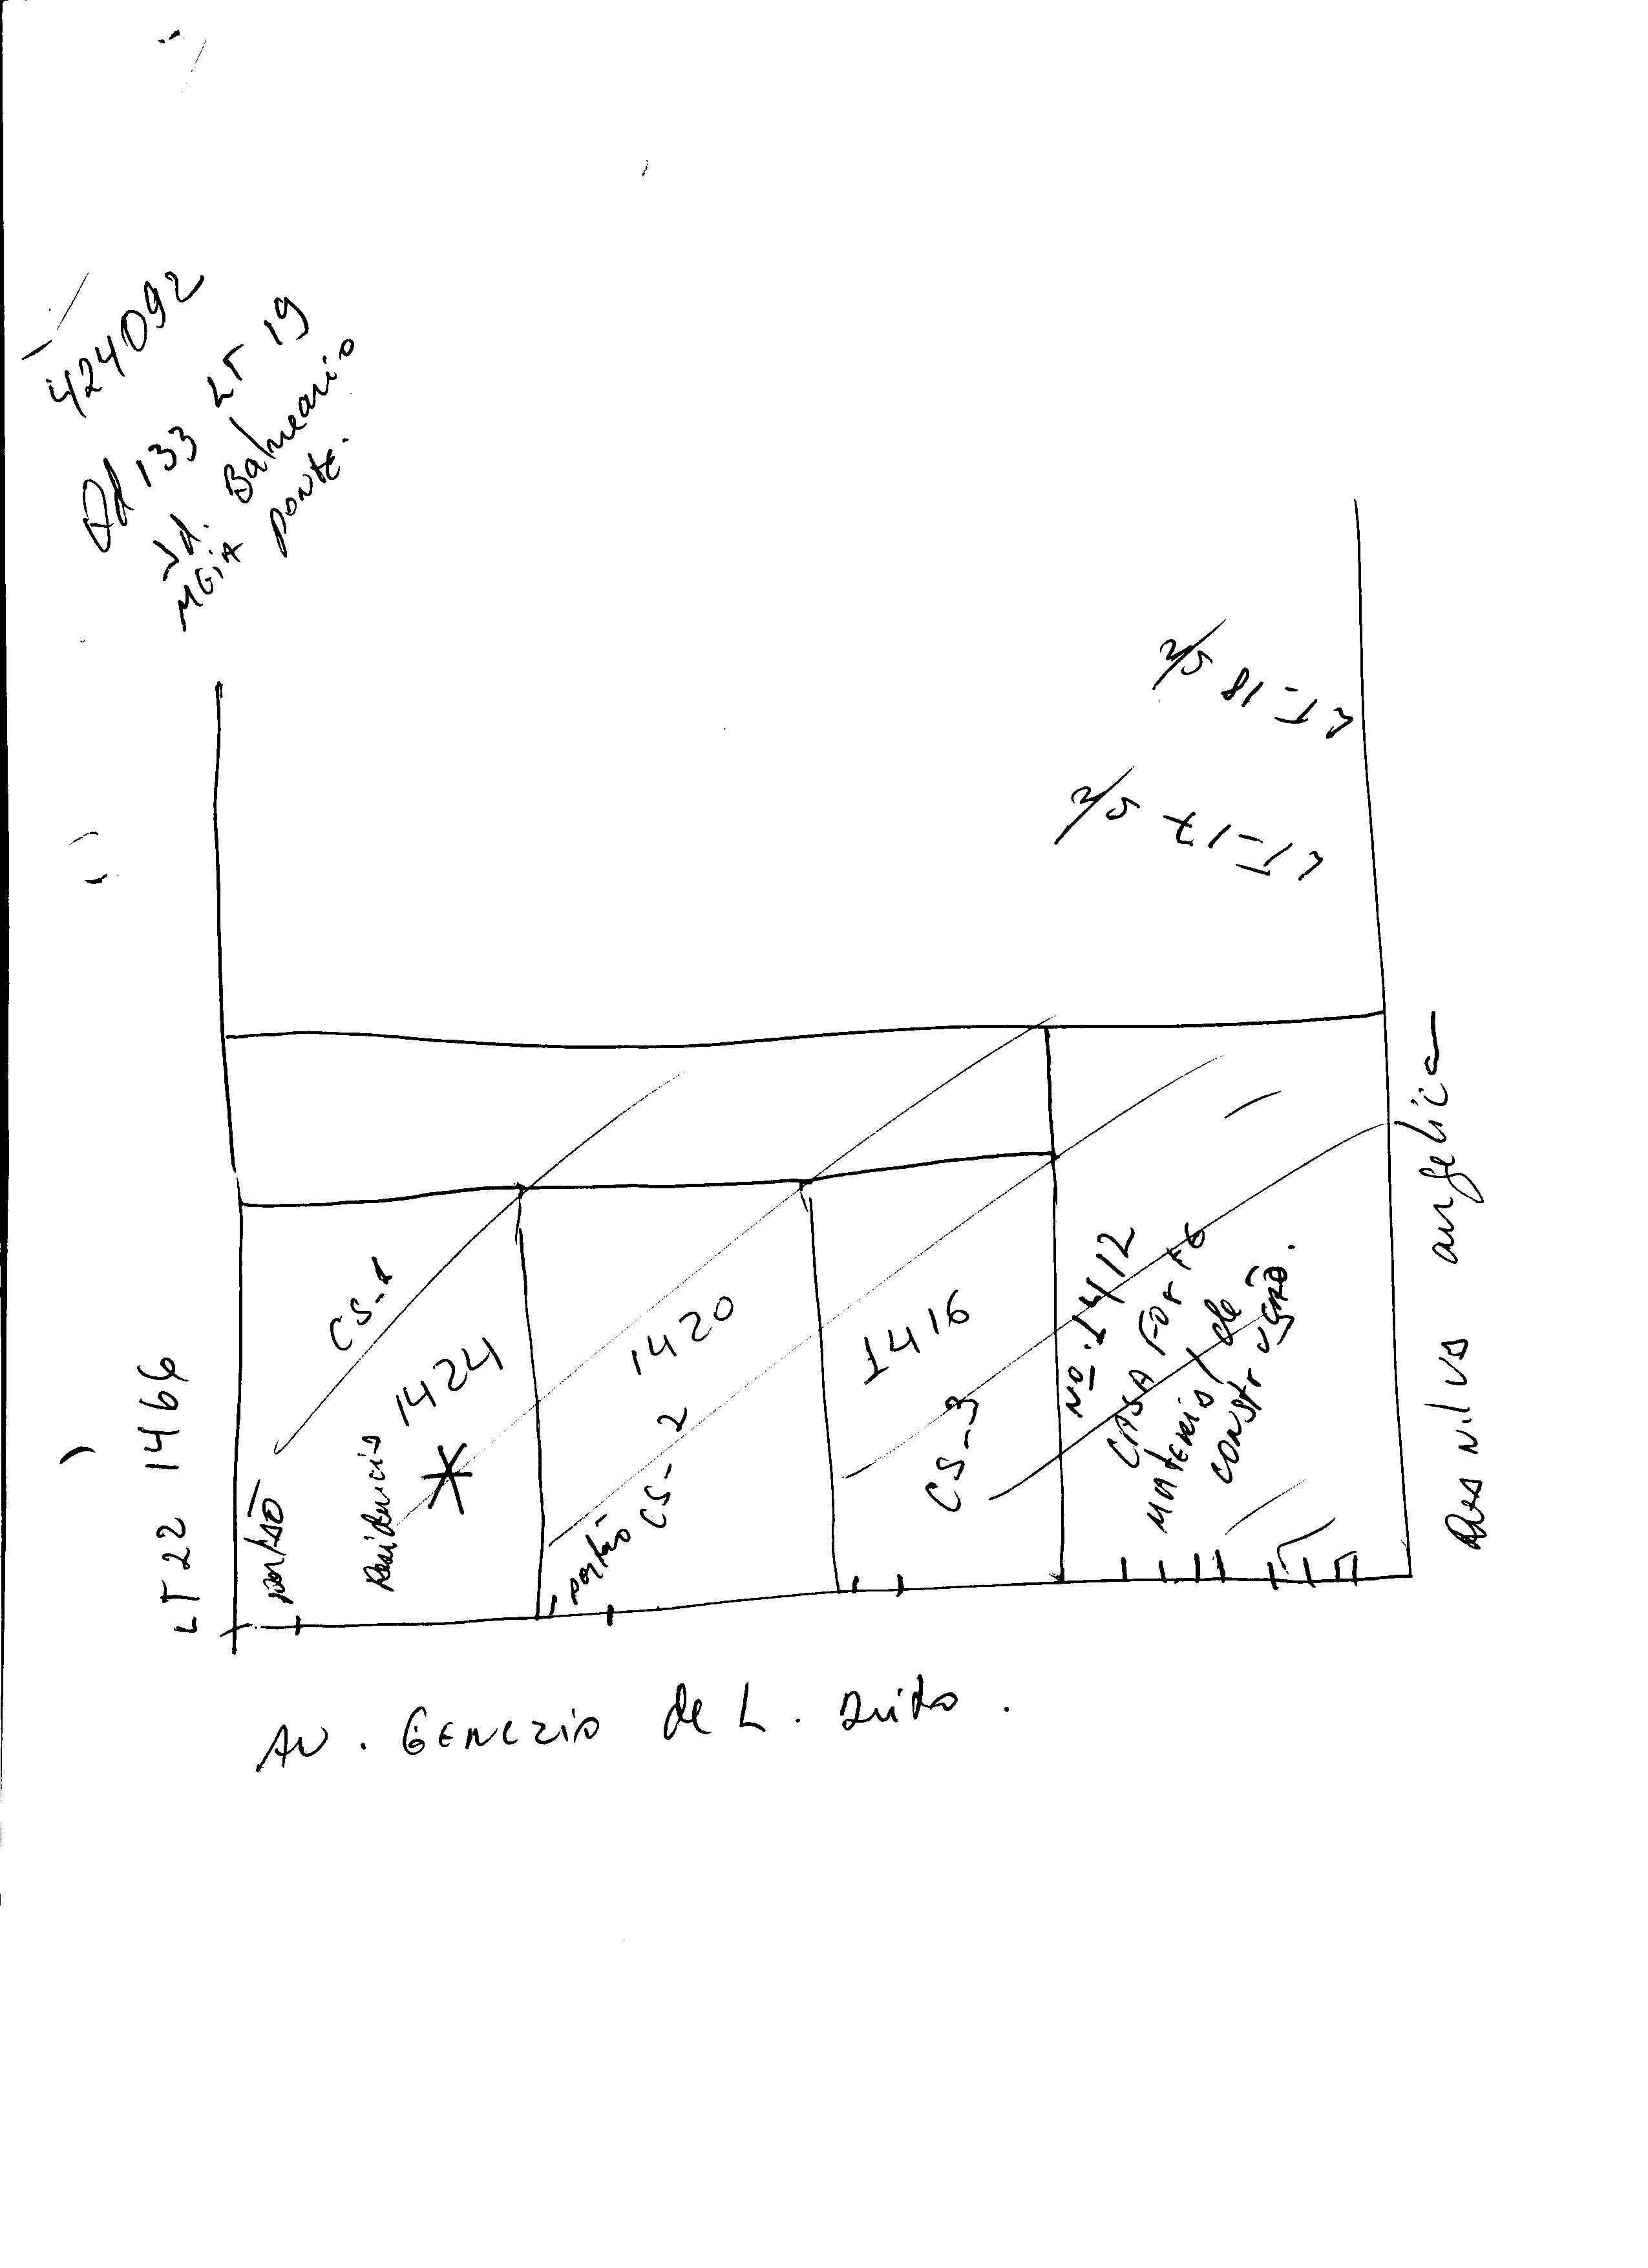 424092
Qd 133 LT 19
Jd. Balneario
MEiA PONTE.
LT-18 S/N
LT-17 S/N
LT 22 1466
portão
CS-1
Residencia
1424
portão CS-2
1420
CS-3
1416
Nº. 1412
CASA FORTE
MATERIAL de
CONSTRUÇÃO.
AV. GENEZIO de L.
angelica